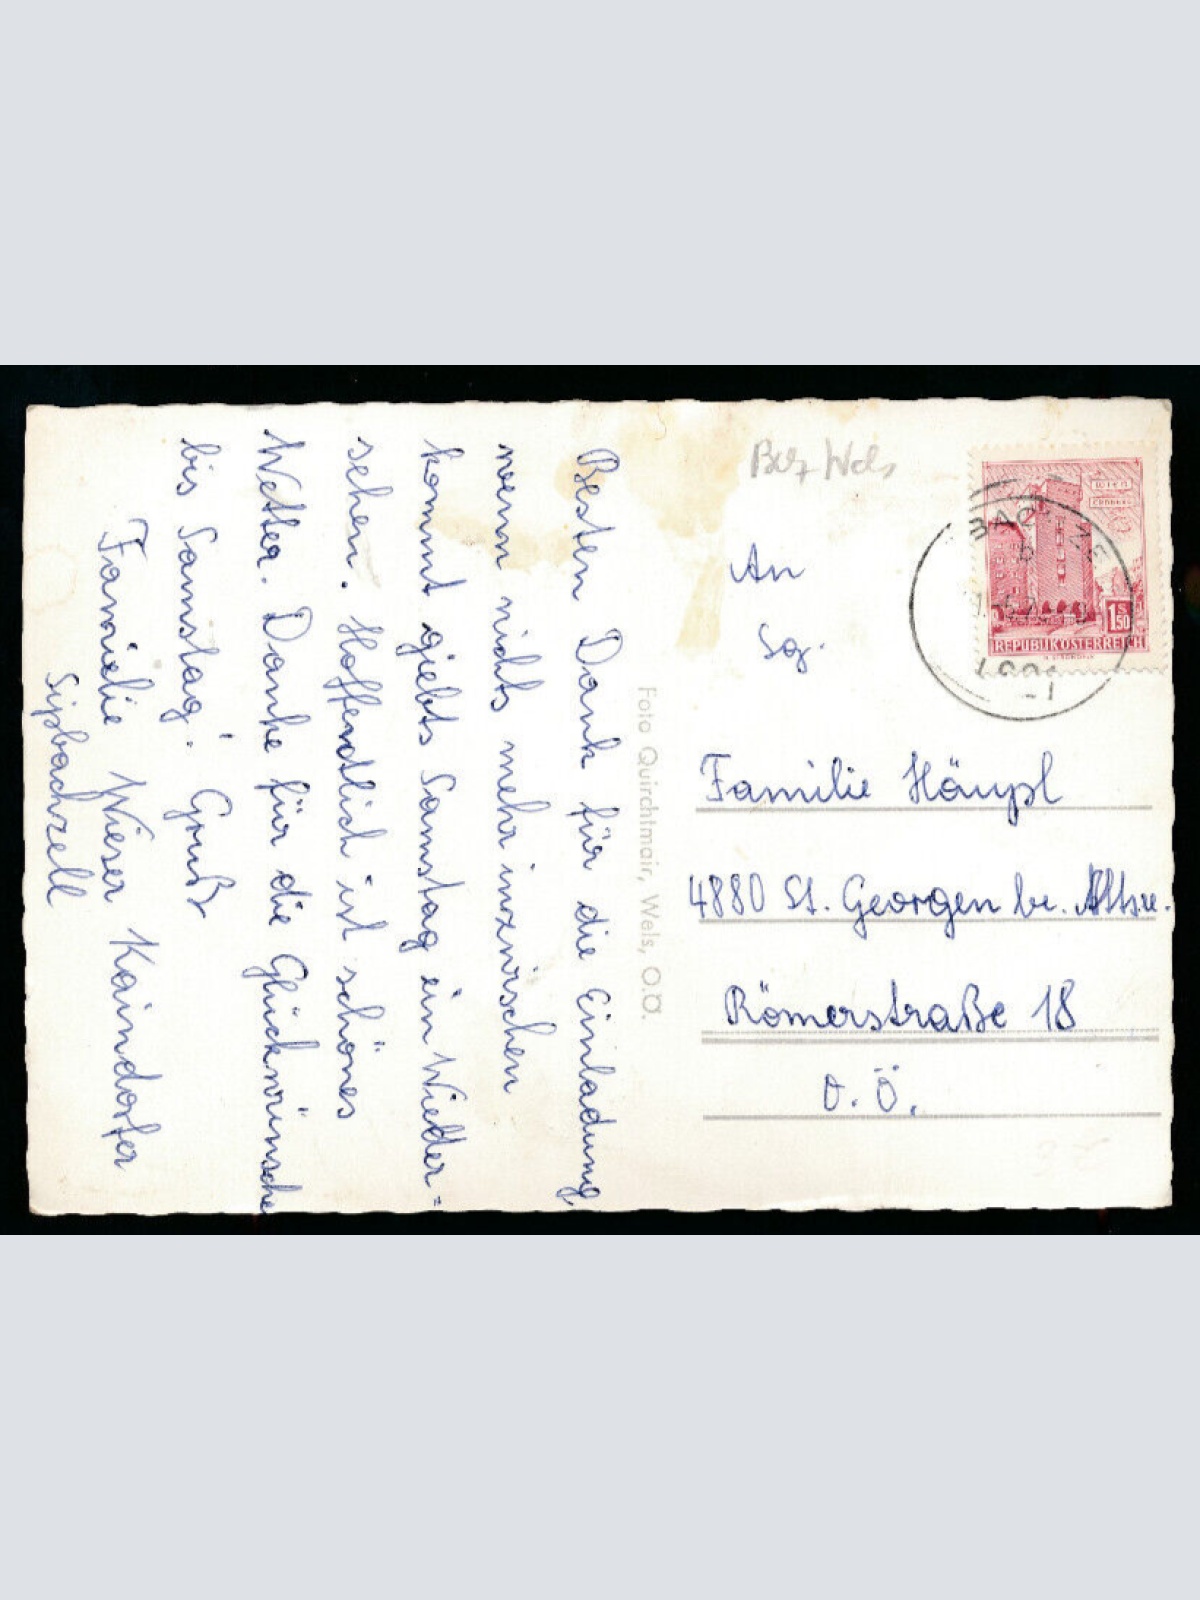 Besten Dank für die Einladung
wenn nichts mehr inzwischen
kommt giebts Samstag ein Wieder=
sehen. Hoffendlich ist schönes
Wetter. Danke für die Glückwünsche
bis Samstag. Gruß
Familie Wieser Kaindorfer
Sipbachzell
Foto Quirchtmair, Wels, O.Ö.
Bez Wels
An
Familie Häupl
4880 St. Georgen be. Atter.
Römerstraße 18
O.Ö.
WIEN
1.50
S
REPUBLIK ÖSTERREICH